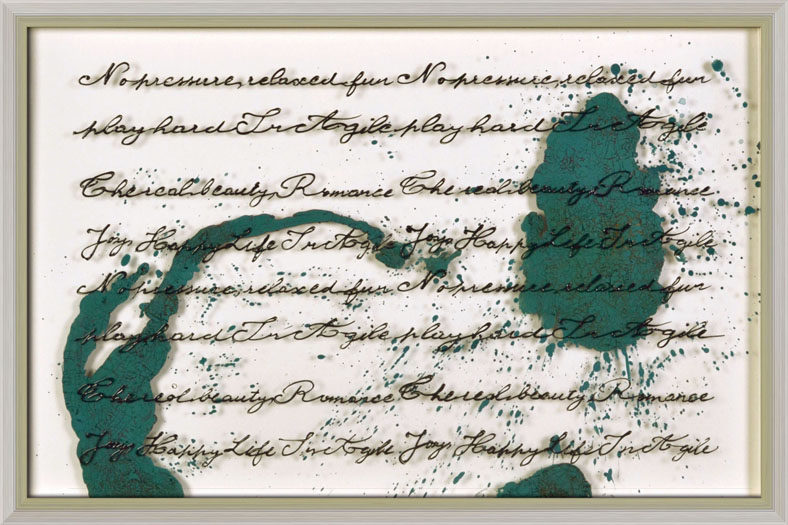 No pressure, relaxed fun No pressure, relaxed fun
play hard In Agile play hard In Agile
Thereal beauty, Romance Thereal beauty, Romance
Joys Happy Life In Agile Joys Happy Life In Agile
No pressure, relaxed fun No pressure, relaxed fun
play hard In Agile play hard In Agile
Thereal beauty, Romance Thereal beauty, Romance
Joys Happy Life In Agile Joys Happy Life In Agile